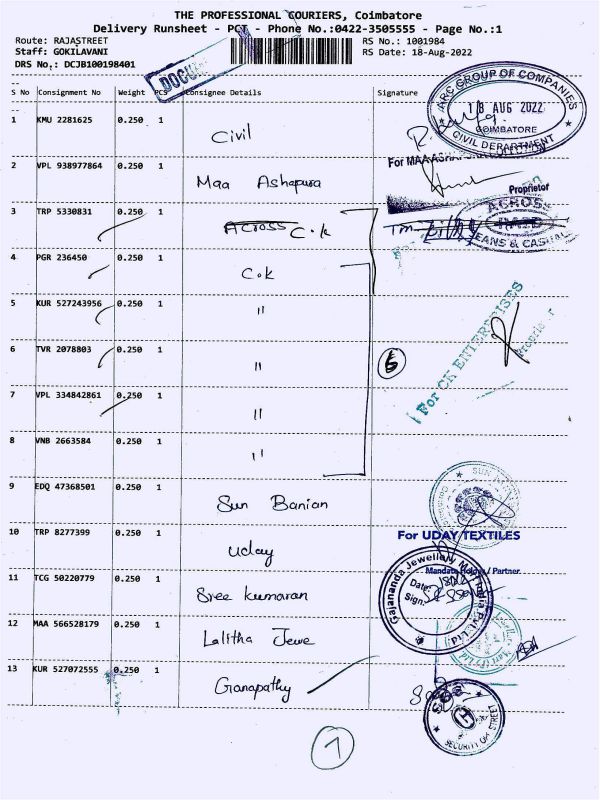 THE PROFESSIONAL COURIERS, Coimbatore
Delivery Runsheet - PCT - Phone No.:0422-3505555 - Page No.:1
Route: RAJASTREET RS No.: 1001984
Staff: GOKILAVANI RS Date: 18-Aug-2022
DRS No.: DCJB100198401
DOCU
S No Consignment No Weight PCS Consignee Details Signature
ARC GROUP OF COMPANIES
18 AUG 2022
COIMBATORE
CIVIL DEPARTMENT
1 KMU 2281625 0.250 1 Civil
2 VPL 938977864 0.250 1 Maa Ashapura
For MAA ASHAPURA
Proprietor
3 TRP 5330831 0.250 1 Across C.k
ACROSS
JEANS & CASUAL
4 PGR 236450 0.250 1 C.k
5 KUR 527243956 0.250 1 "
For CK ENTERPRISES
Proprietor
6 TVR 2078803 0.250 1 "
6
7 VPL 334842861 0.250 1 "
8 VNB 2663584 0.250 1 "
9 EDQ 47368501 0.250 1 Sun Banian
SUN
10 TRP 8277399 0.250 1 Uday
For UDAY TEXTILES
11 TCG 50220779 0.250 1 Sree kumaran
Partner
Gajananda Jewellery Mart India Pvt Ltd
Date:
Sign:
12 MAA 566528179 0.250 1 Lalitha Jewe
13 KUR 527072555 0.250 1 Ganapathy
SECURITY
STREET
7